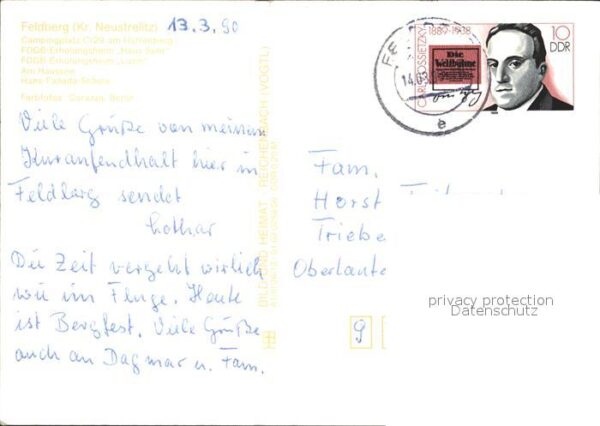 Feldberg (Kr. Neustrelitz) 13.3.90
Campingplatz C/29 am Hüttenberg
FDGB-Erholungsheim
FDGB-Erholungsheim
Am Haussee
Hans-Fallada-Schule
Farbfotos: Darazej, Berlin
Viele Grüße von meinem
Kuraufendhalt hier in
Feldberg sendet
Lothar
Die Zeit vergeht wirlich
wie im Fluge. Heute
ist Bergfest. Viele Grüße
auch an Dagmar u. Fam.
BILD UND HEIMAT REICHENBACH (VOGTL)
CARL VON OSSIETZKY 1889-1938
Die
Weltbühne
10
DDR
14.03.
e
Fam.
Horst
Triebe
Oberlaute
9
privacy protection
Datenschutz